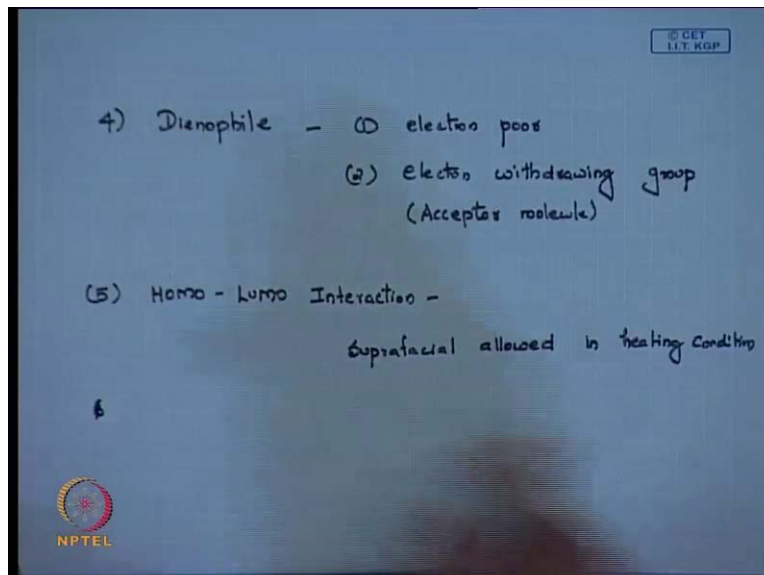 © CET
I.I.T. KGP
4) Dienophile - (1) electron poor
(2) electron withdrawing group
(Acceptor molecule)
(5) Homo - Lumo Interaction -
Suprafacial allowed in heating Condition
6
NPTEL